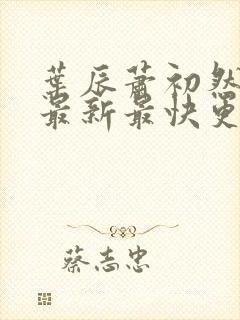 葉辰蕭初然
最新最快更
蔡志忠